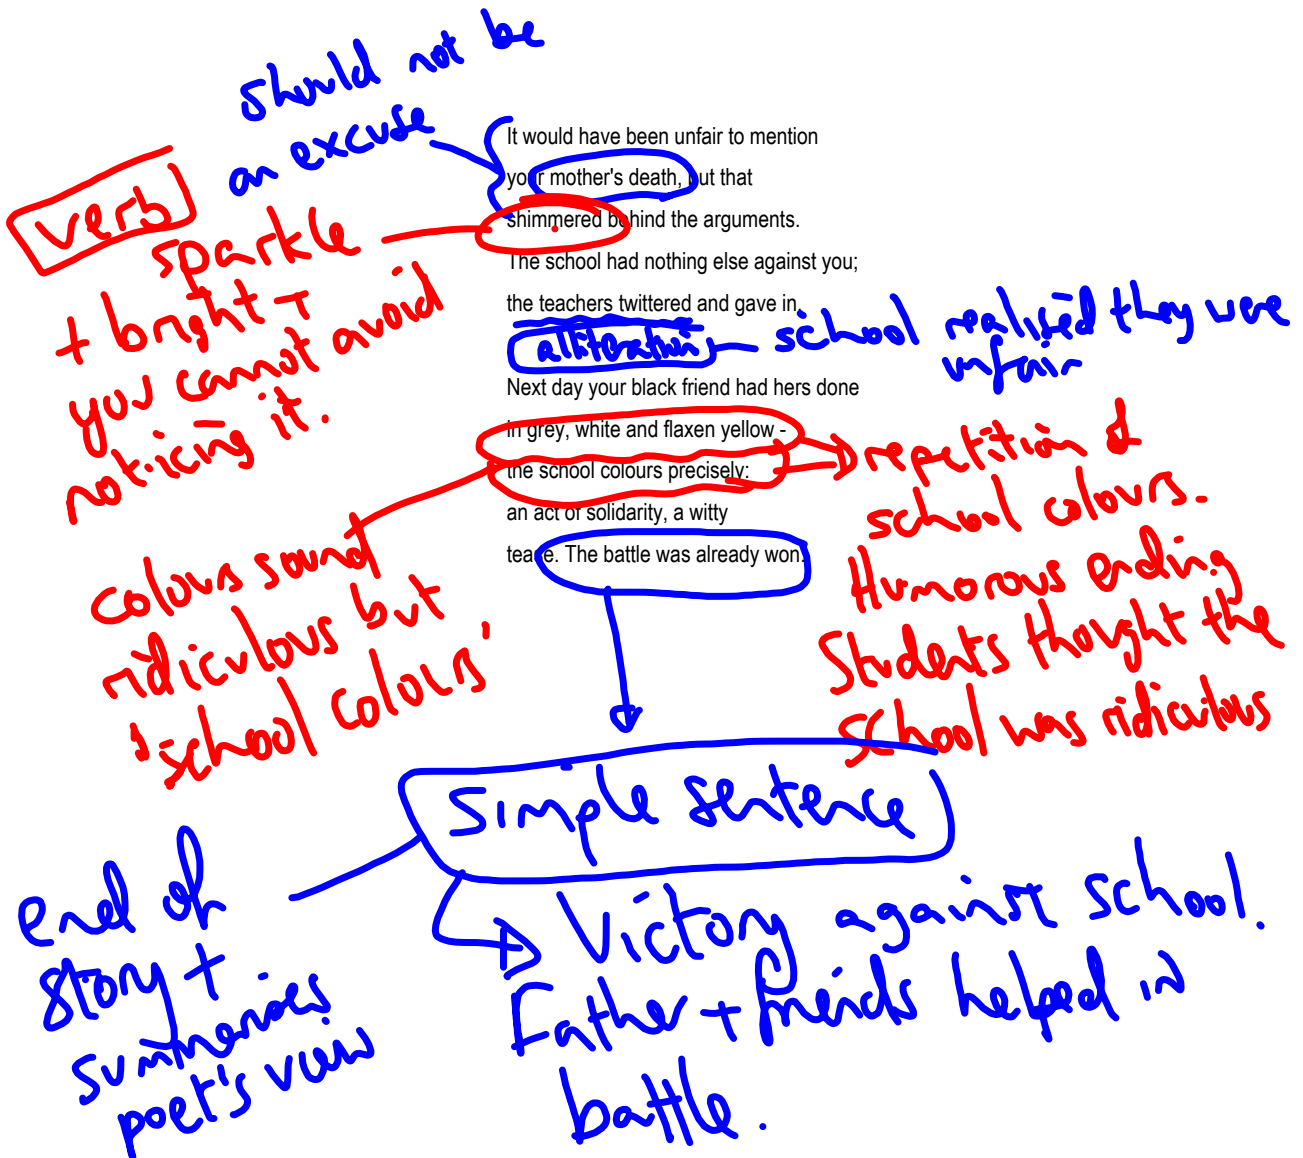 should not be
an excuse
It would have been unfair to mention
your mother's death, but that
shimmered behind the arguments.
The school had nothing else against you;
the teachers twittered and gave in.
verb
sparkle
+ bright →
you cannot avoid
noticing it.
alliteration – school realised they were
unfair
Next day your black friend had hers done
in grey, white and flaxen yellow -
the school colours precisely:
an act of solidarity, a witty
tease. The battle was already won.
repetition of
school colours.
Humorous ending
Students thought the
school was ridiculous
colours sound
ridiculous but
'school colours'
Simple sentence
end of
story +
summarises
poet's view
Victory against school.
Father + friends helped in
battle.